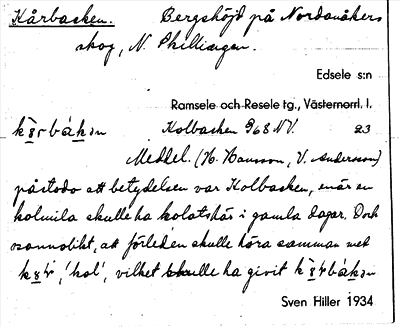 Kårbacken. Bergshöjd på Nordanåkers
skog, N. Phillingen.
Edsele s:n
Ramsele och Resele tg., Västernorrl. l.
Kolbacken 968 NV. 23
Meddel. (H. Hansson, V. Andersson)
påstodo att betydelsen var Kolbacken, enär en
kolmila skulle ha kolats här i gamla dagar. Dock
osannolikt, att förleden skulle höra samman med
'kol', vilket skulle ha givit
Sven Hiller 1934